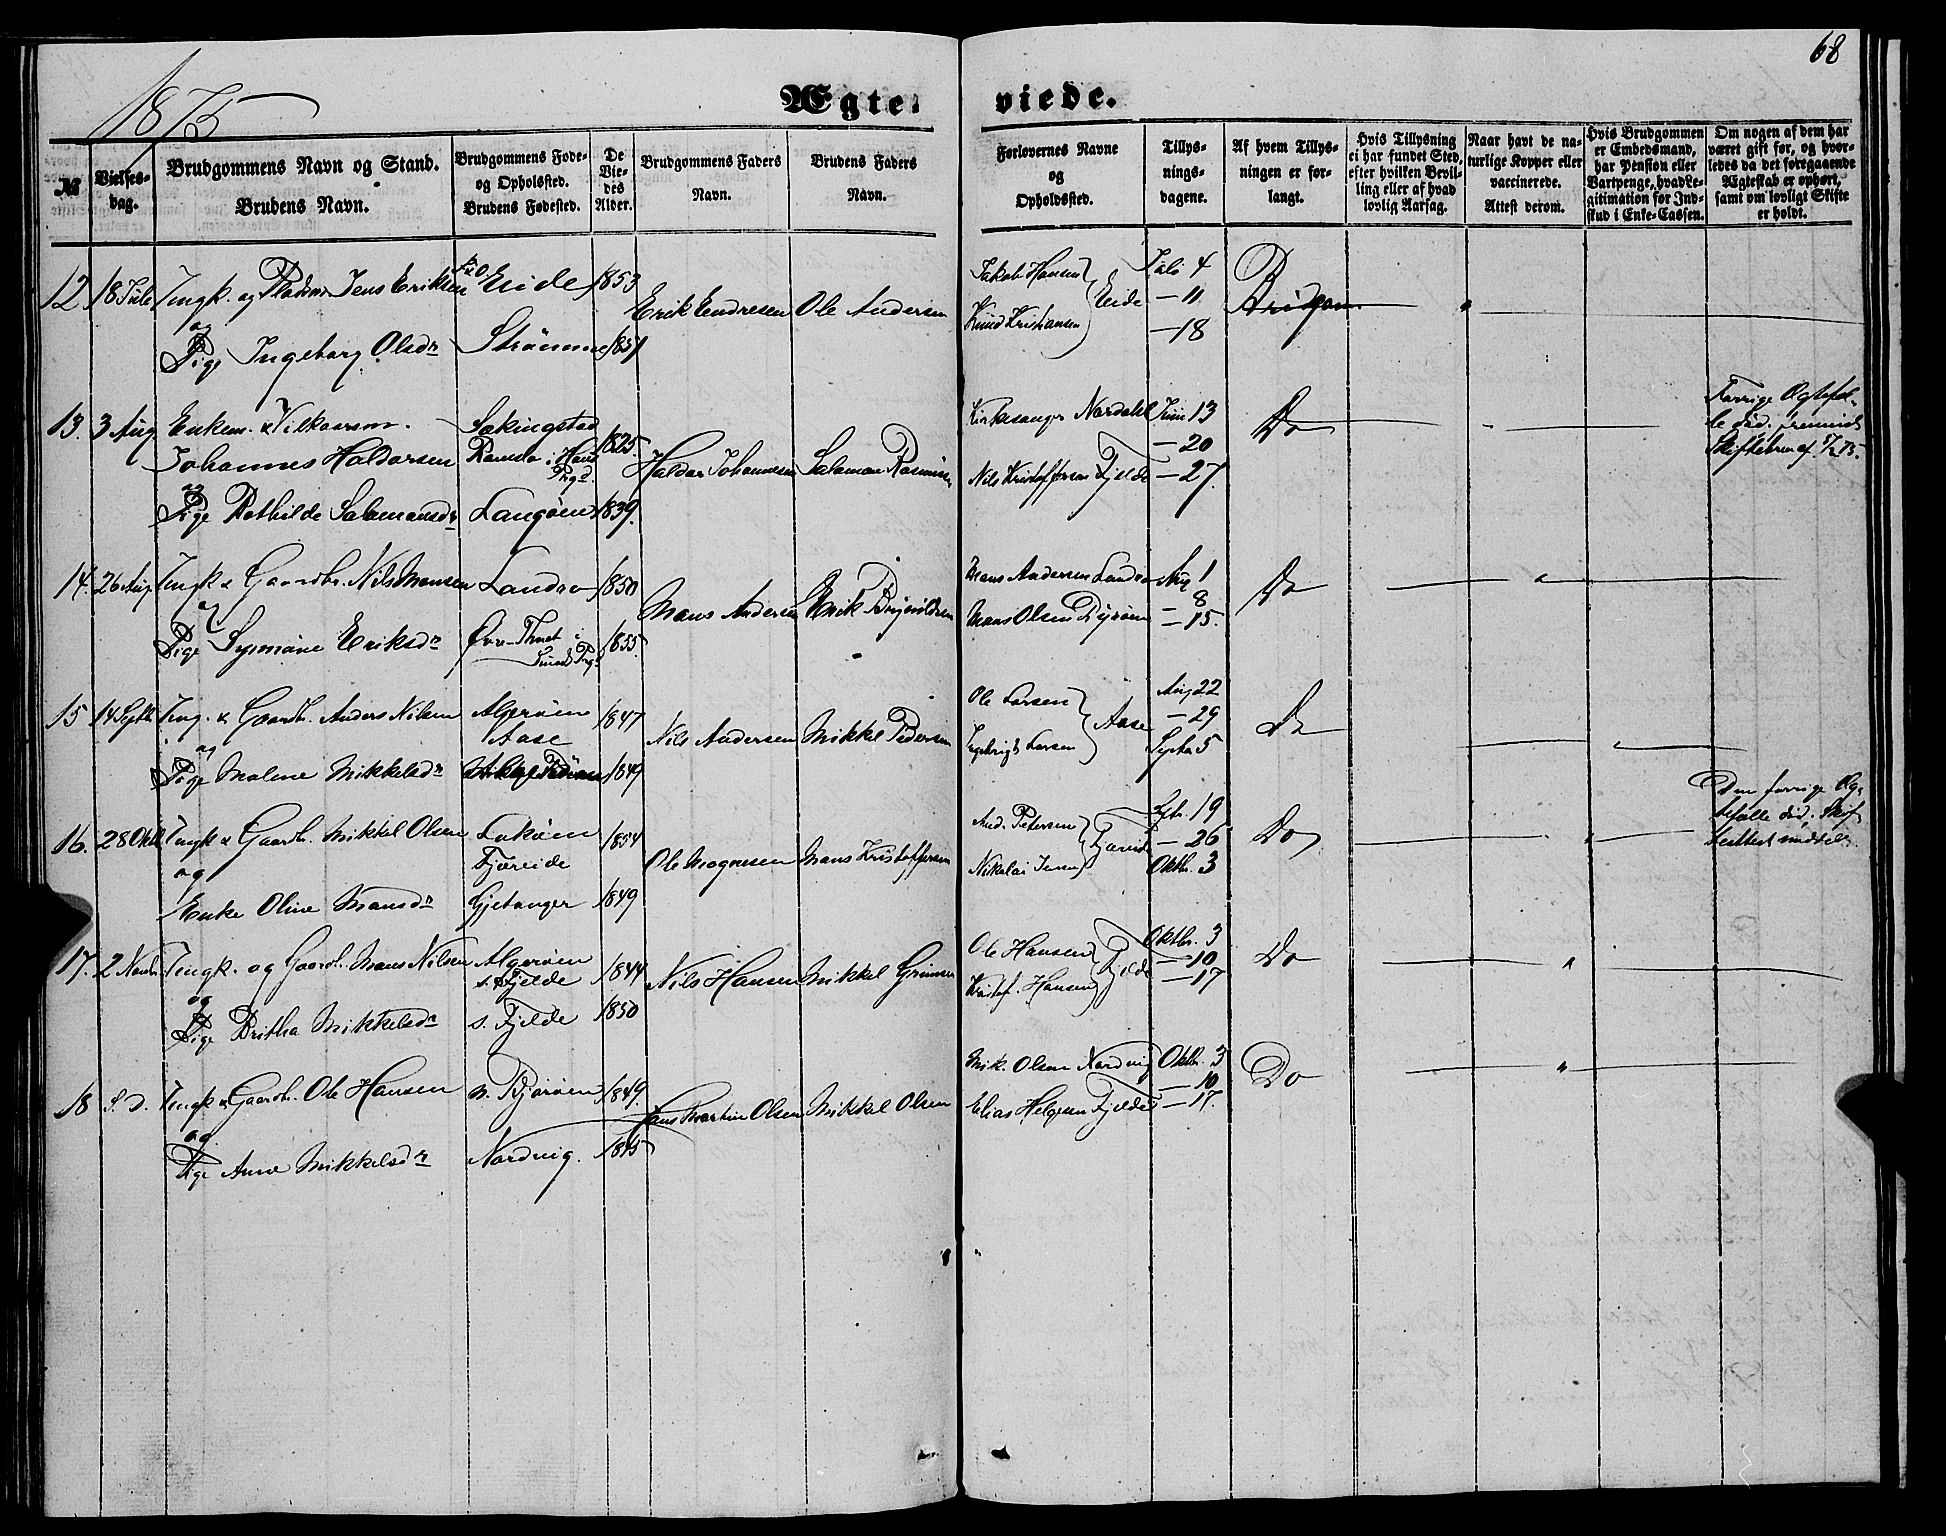 68
1875
Ægte-
viede.
№
Vielses-
dag.
Brudgommens Navn og Stand.
Brudens Navn.
Brudgommens Føde-
og Opholdssted.
Brudens Fødested.
De
Vie-
des
Alder.
Brudgommens Faders
Navn.
Brudens Faders
Navn.
Forlovernes Navne
og
Opholdssted.
Tillys-
nings-
dagene.
Af hvem Tillys-
ningen er for-
langt.
Hvis Tillysning
ei har fundet Sted,
efter hvilken Bevil-
ling eller af hvad
lovlig Aarsag.
Naar havt de na-
turlige Kopper eller
vaccinerede.
Attest derom.
Hvis Brudgommen
er Embedsmand,
har Pension eller
Vartpenge, hvad Le-
gitimation for Ind-
skud i Enke-Cassen.
Om nogen af dem har
været gift før, og hvor-
ledes da det foregaaende
Ægteskab er ophørt,
samt om lovligt Skifte
er holdt.
12. 18 Juli Ungk. og Jens Eriksen Eide 1853
og
Pige Ingeborg Olsdr Strømme 1851
Erik Endresen Ole Andersen
Jakob Hansen
Knud Kristiansen
Eide
Juli 4
— 11
— 18
Brudgom.
13. 3 Aug Enkem. &
Johannes Haldorsen
og
Pige Bothilde Salamonsdr
Langøen
1825.
1839.
Haldor Johannesen Salamon Rasmusen
Kirkesanger Nordahl
Nils Kristoffersen Fjelde
Juni 13
— 20
— 27.
Do
Forrige Ægtefæl-
le død.
14. 26 Aug. Ungk & Gaardbr. Nils Monsen Landro 1850
og
Pige Synnøve Eriksdr Øvre-
Sunds Prgd 1855
Mons Andersen Erik
Mons Andersen Landro
Mons Olsen Dyrøen
Aug 1
— 8
— 15.
Do
15 14 Septbr Ung. & Gaardb. Anders Nilsen Algerøen
Aase 1847
og
Pige Malene Mikkelsdr 1849
Nils Andersen Mikkel Pedersen
Ole Larsen
Larsen
Aase
Aug 22
— 29
Septb 5
Do
16. 28 Oktb Ungk & Gaardb. Mikkel Olsen
Fjæreide 1854
og
Enke Oline Monsdr Gjetanger 1849
Ole Mognesen Mons Kristoffersen
And. Petersen
Nikolai Jensen
Fjæreide
Sptbr. 19
— 26
Oktbr. 3
Do
Den forrige Æg-
tefælle død.
17. 2 Novbr. Ungk. og Gaardb. Mons Nilsen Algerøen
s. Fjelde 1844
og
Pige Britha Mikkelsdr s. Fjelde 1850
Nils Hansen Mikkel Grimsen
Ole Hansen
Kristof. Hansen
Fjelde
Oktbr. 3
— 10
— 17
Do
18 S. D. Ungk & Gaardb. Ole Hansen n. Bjorøen 1849.
og
Pige Anne Mikkelsdr Nordvig. 1845
Hans Martin Olsen Mikkel Olsen
Mik. Olsen Nordvig
Elias Helgesen Fjelde
Oktbr. 3
— 10
— 17.
Do